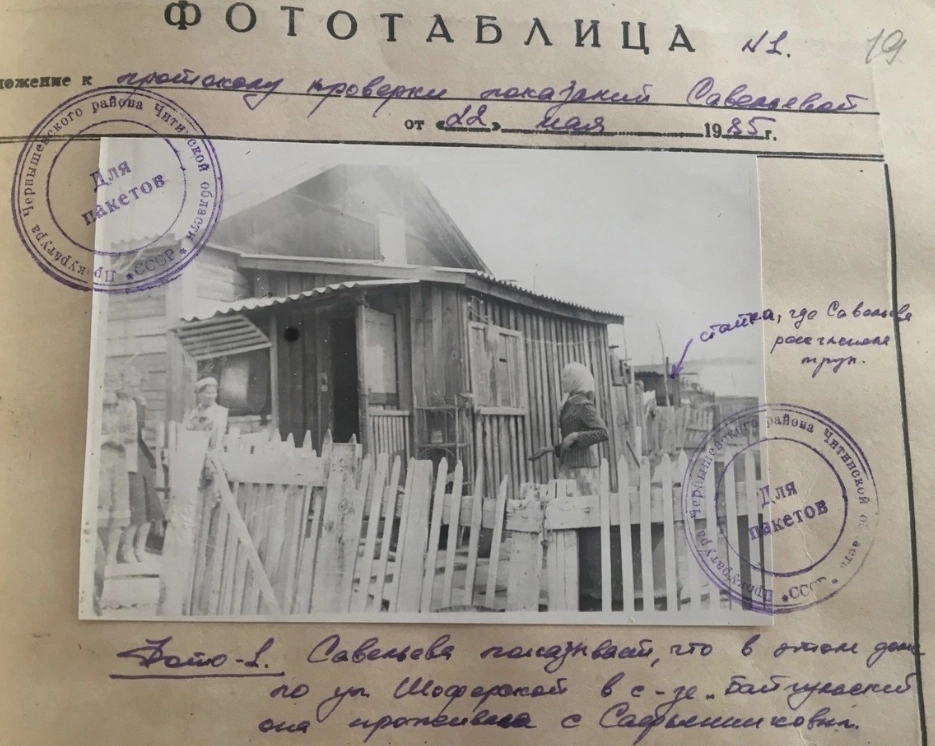 ФОТОТАБЛИЦА N1.
19
ложение к протоколу проверки показаний Савельевой
от «22» мая 1985 г.
Прокуратура Чернышевского района Читинской области * СССР *
Для
пакетов
стайка, где Савельева
расчленила
труп.
Прокуратура Чернышевского района Читинской области * СССР *
Для
пакетов
Фото-1. Савельева показывает, что в этом доме
по ул. Шоферской в с-зе „Байгульский
она проживала с